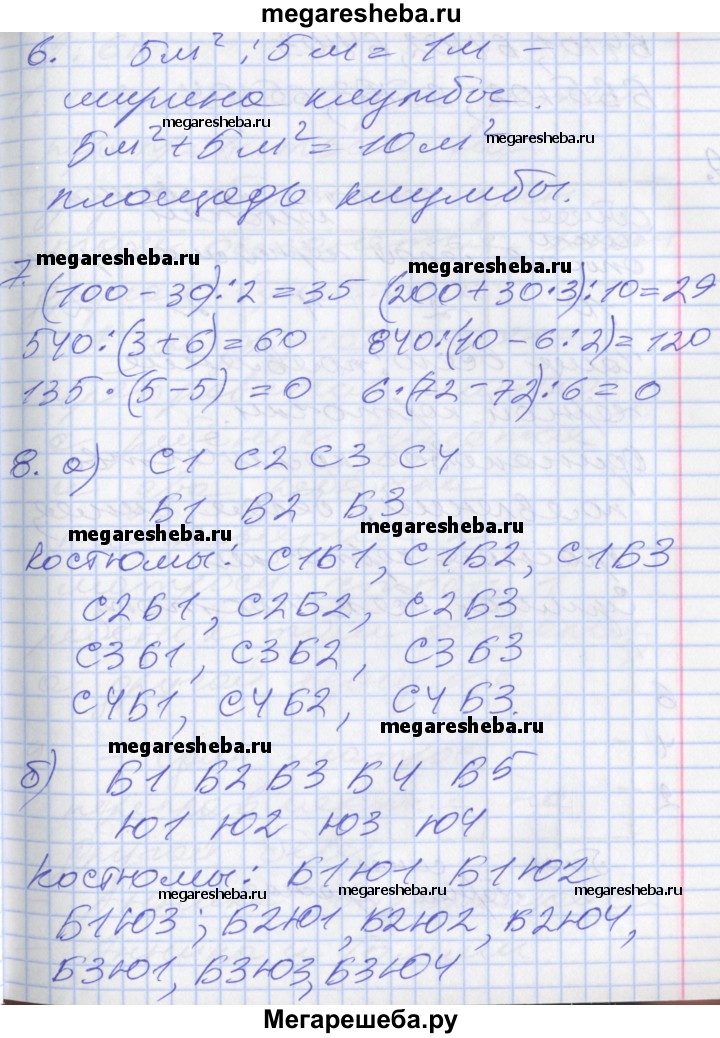 megaresheba.ru
6. 5м² : 5м = 1м –
ширина клумбы.
megaresheba.ru
megaresheba.ru
5м² + 5м² = 10м²
площадь клумбы.
megaresheba.ru
megaresheba.ru
7. (100 – 30) : 2 = 35 (200 + 30 · 3) : 10 = 29
540 : (3 + 6) = 60 840 : (10 – 6 : 2) = 120
135 · (5 – 5) = 0 6 · (72 – 72) : 6 = 0
8. а) С1 С2 С3 С4
Б1 Б2 Б3
megaresheba.ru
megaresheba.ru
Костюмы: С1Б1, С1Б2, С1Б3
С2Б1, С2Б2, С2Б3
С3Б1, С3Б2, С3Б3
С4Б1, С4Б2, С4Б3.
megaresheba.ru
megaresheba.ru
б) Б1 Б2 Б3 Б4 Б5
Ю1 Ю2 Ю3 Ю4
Костюмы: Б1Ю1 Б1Ю2
megaresheba.ru
megaresheba.ru
megaresheba.ru
Б1Ю3; Б2Ю1, Б2Ю2, Б2Ю4,
Б3Ю1, Б3Ю3, Б3Ю4
Мегарешеба.ру